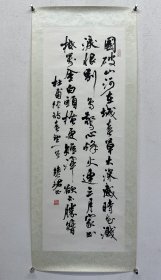 國破山河在城春草木深感時花濺
淚恨別鳥驚心烽火連三月家書
抵萬金白頭搔更短渾欲不勝簪
杜甫詩春望